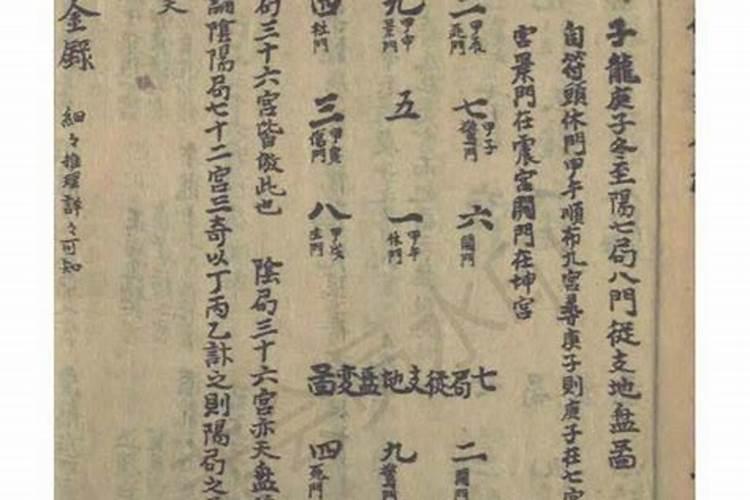 子龍庚子冬至陽七局八門從支地盤圖
自符頭休門甲午順布九宮尋庚子則庚子在七宮
宮景門在震宮開門在坤宮
二 甲辰 死門
七 甲子 驚門
六 開門
九 甲申 景門
五
一 甲午 休門
四 杜門
三 甲寅 傷門
八 甲戌 生門
七局從支地盤變圖
二 開門
九 驚門
四 死門
局三十六宮皆倣此也 陰局三十六宮亦天盤
論陰陽局七十二宮三奇以丁丙乙訣之則陽局之
金錄 細々推理詳々可知